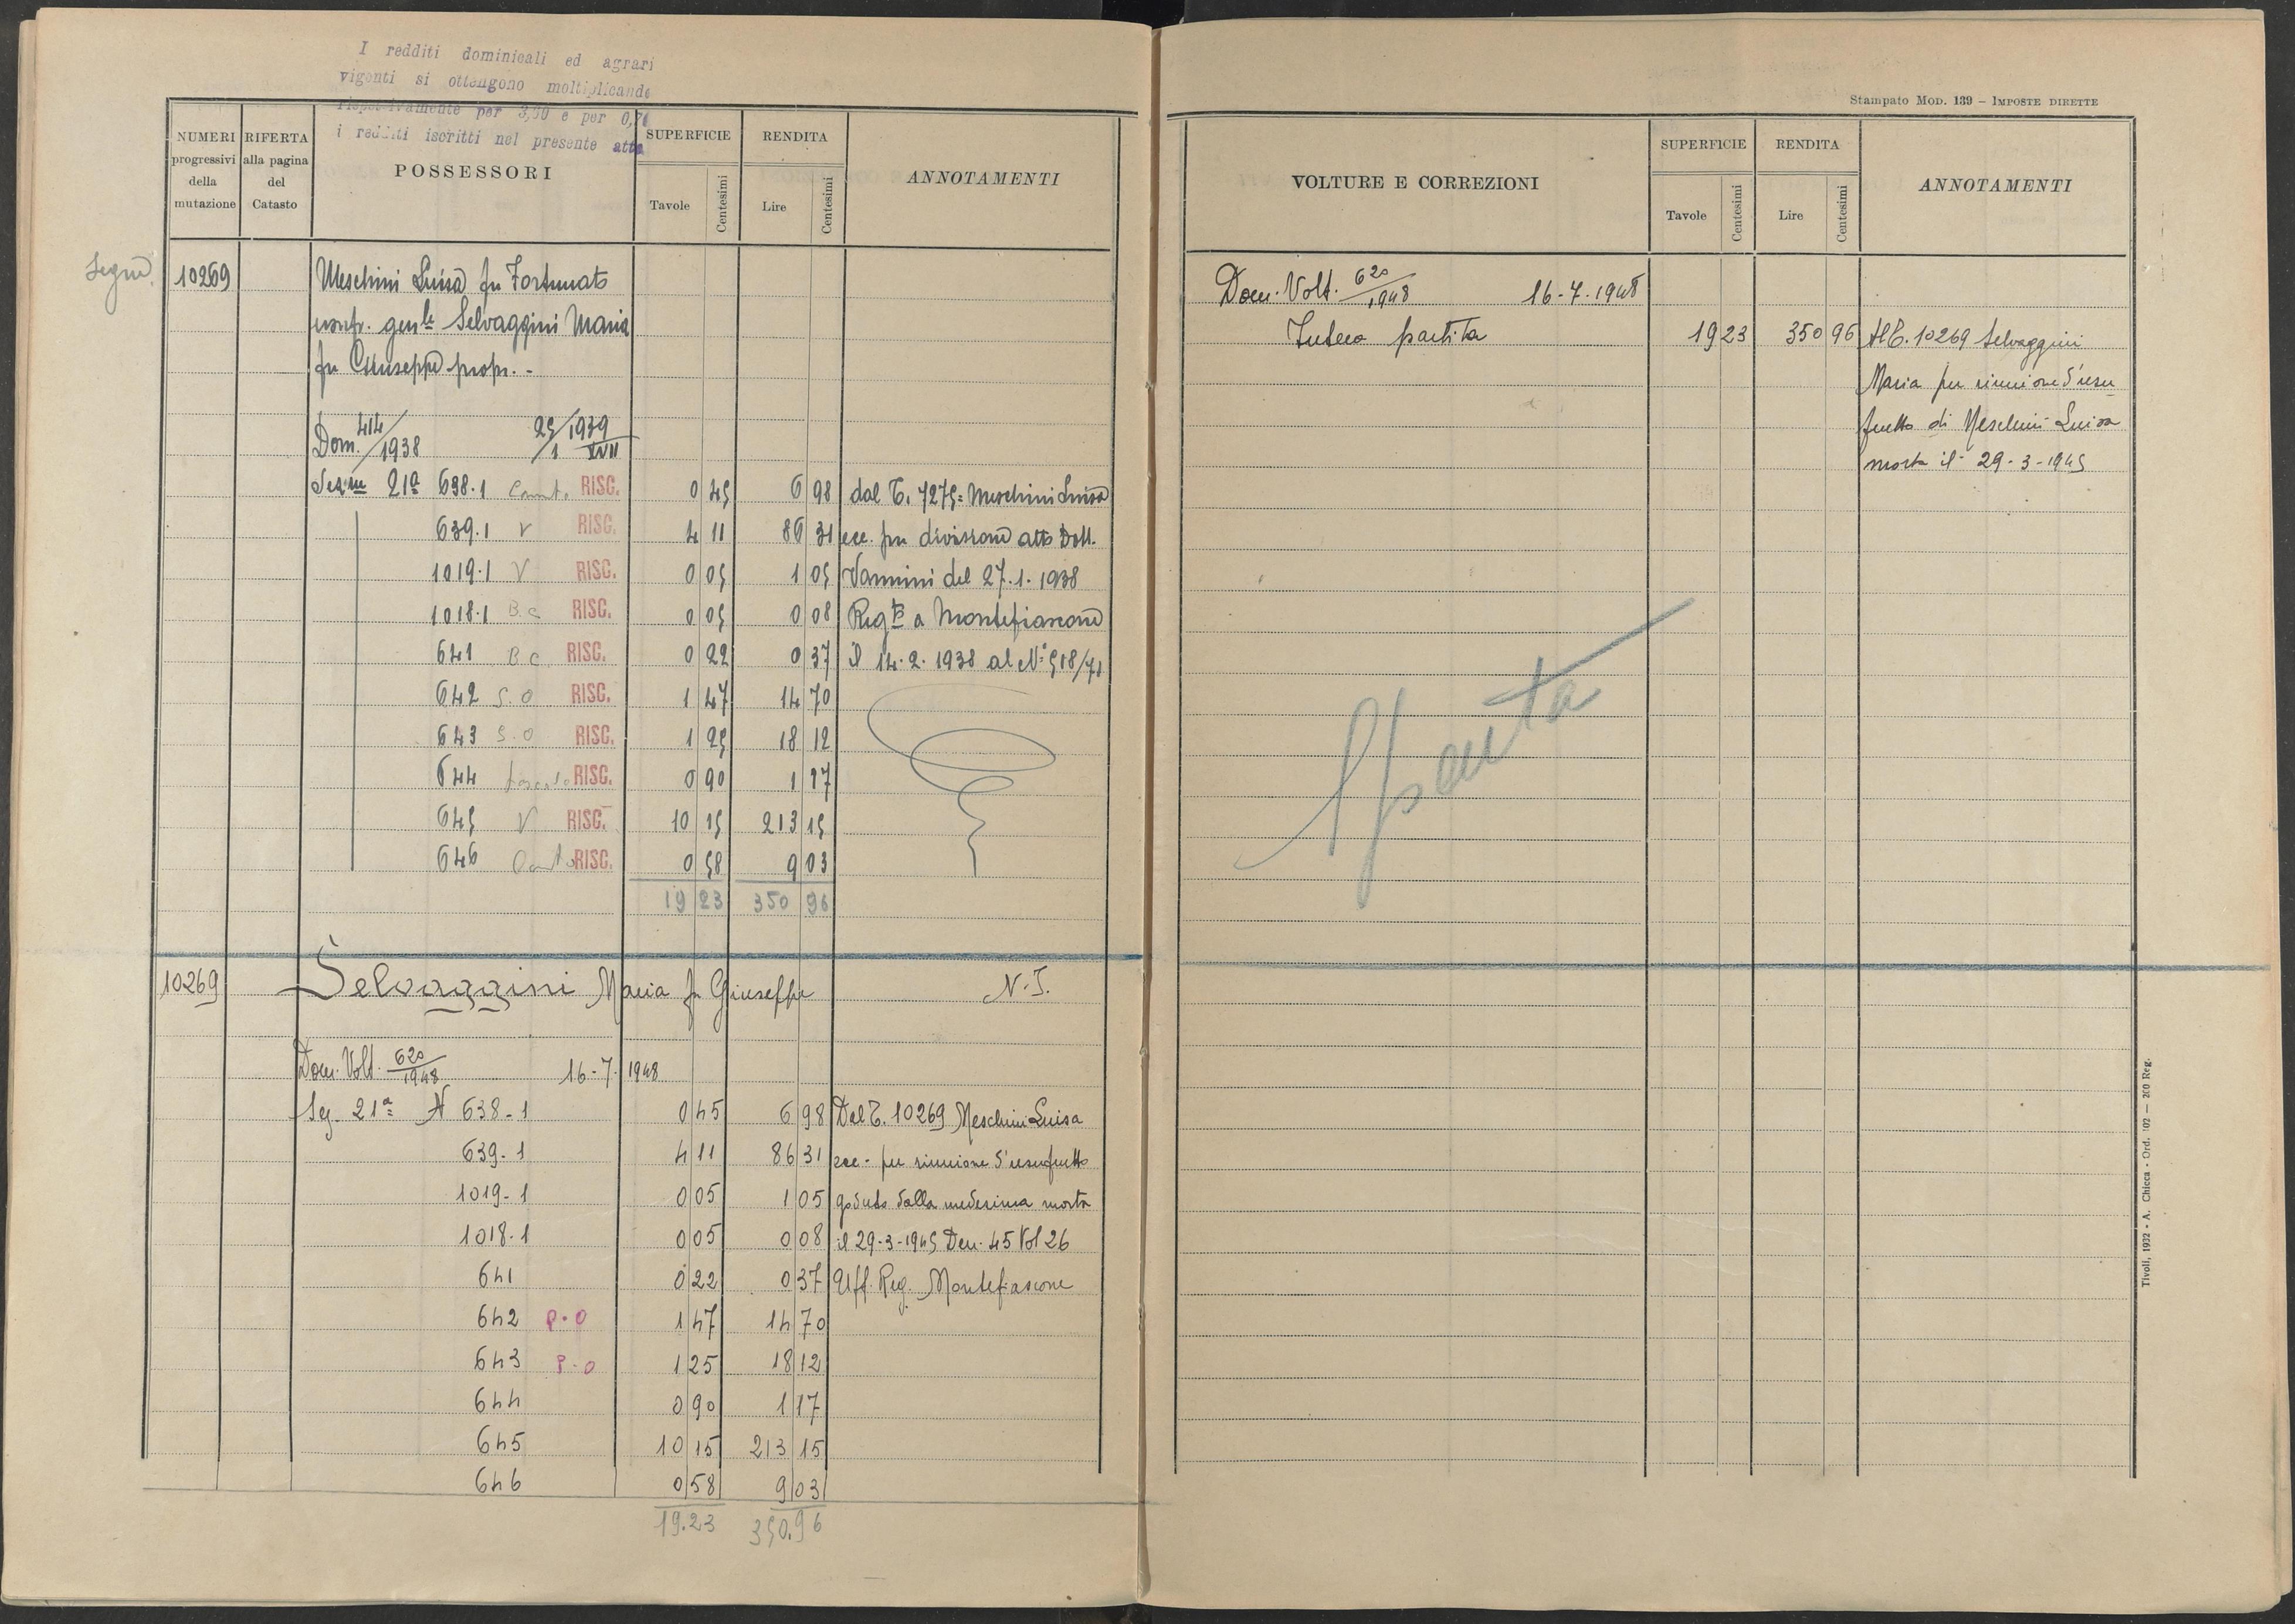 I redditi dominicali ed agrari
vigenti si ottengono moltiplicando
rispettivamente per 3,50 e per 0,70
i redditi iscritti nel presente atto
NUMERI progressivi della mutazione
RIFERTA alla pagina del Catasto
POSSESSORI
SUPERFICIE
Tavole
Centesimi
RENDITA
Lire
Centesimi
ANNOTAMENTI
Segue
10269 Meschini Luisa fu Fortunato
usufr. gen.le Selvaggini Maria
fu Giuseppe propr. -
Dom. 414/1938 25/1 1939 XVII
Sez.ne 21ª 638.1 RISC. 0 45 6 98 dal T. 7275 = Meschini Luisa
639.1 V RISC. 4 11 86 31 ecc. per divisione atto Dott.
1019.1 V RISC. 0 05 1 05 Vannini del 27.1.1938
1018.1 B.c RISC. 0 05 0 08 Reg.to a Montefiascone
641 B c. RISC. 0 22 0 37 il 14.2.1938 al N° 518/71
642 S.O RISC. 1 47 14 70
643 S.O RISC. 1 25 18 12
644 RISC. 0 90 1 17
645 V RISC. 10 15 213 15
646 RISC. 0 58 9 03
19 23 350 96
10269 Selvaggini Maria fu Giuseppe N.I.
Dom. Volt. 620/1948 16-7-1948
Sez. 21ª N 638-1 0 45 6 98 Dal T. 10269 Meschini Luisa
639-1 4 11 86 31 ecc - per riunione d'usufrutto
1019-1 0 05 1 05 goduto dalla medesima morta
1018-1 0 05 0 08 il 29-3-1945 Den. 45 Vol 26
641 0 22 0 37 Uff. Reg. Montefiascone
642 P.O 1 47 14 70
643 P.O 1 25 18 12
644 0 90 1 17
645 10 15 213 15
646 0 58 9 03
19.23 350.96
Stampato MOD. 139 - IMPOSTE DIRETTE
VOLTURE E CORREZIONI
SUPERFICIE
Tavole
Centesimi
RENDITA
Lire
Centesimi
ANNOTAMENTI
Dom. Volt. 620/1948 16-7-1948
Intera partita 19 23 350 96 Al T. 10269 Selvaggini
Maria per riunione d'usu
frutto di Meschini Luisa
morta il 29-3-1945
Spenta
Tivoli, 1932 - A. Chicca - Ord. 102 — 200 Reg.